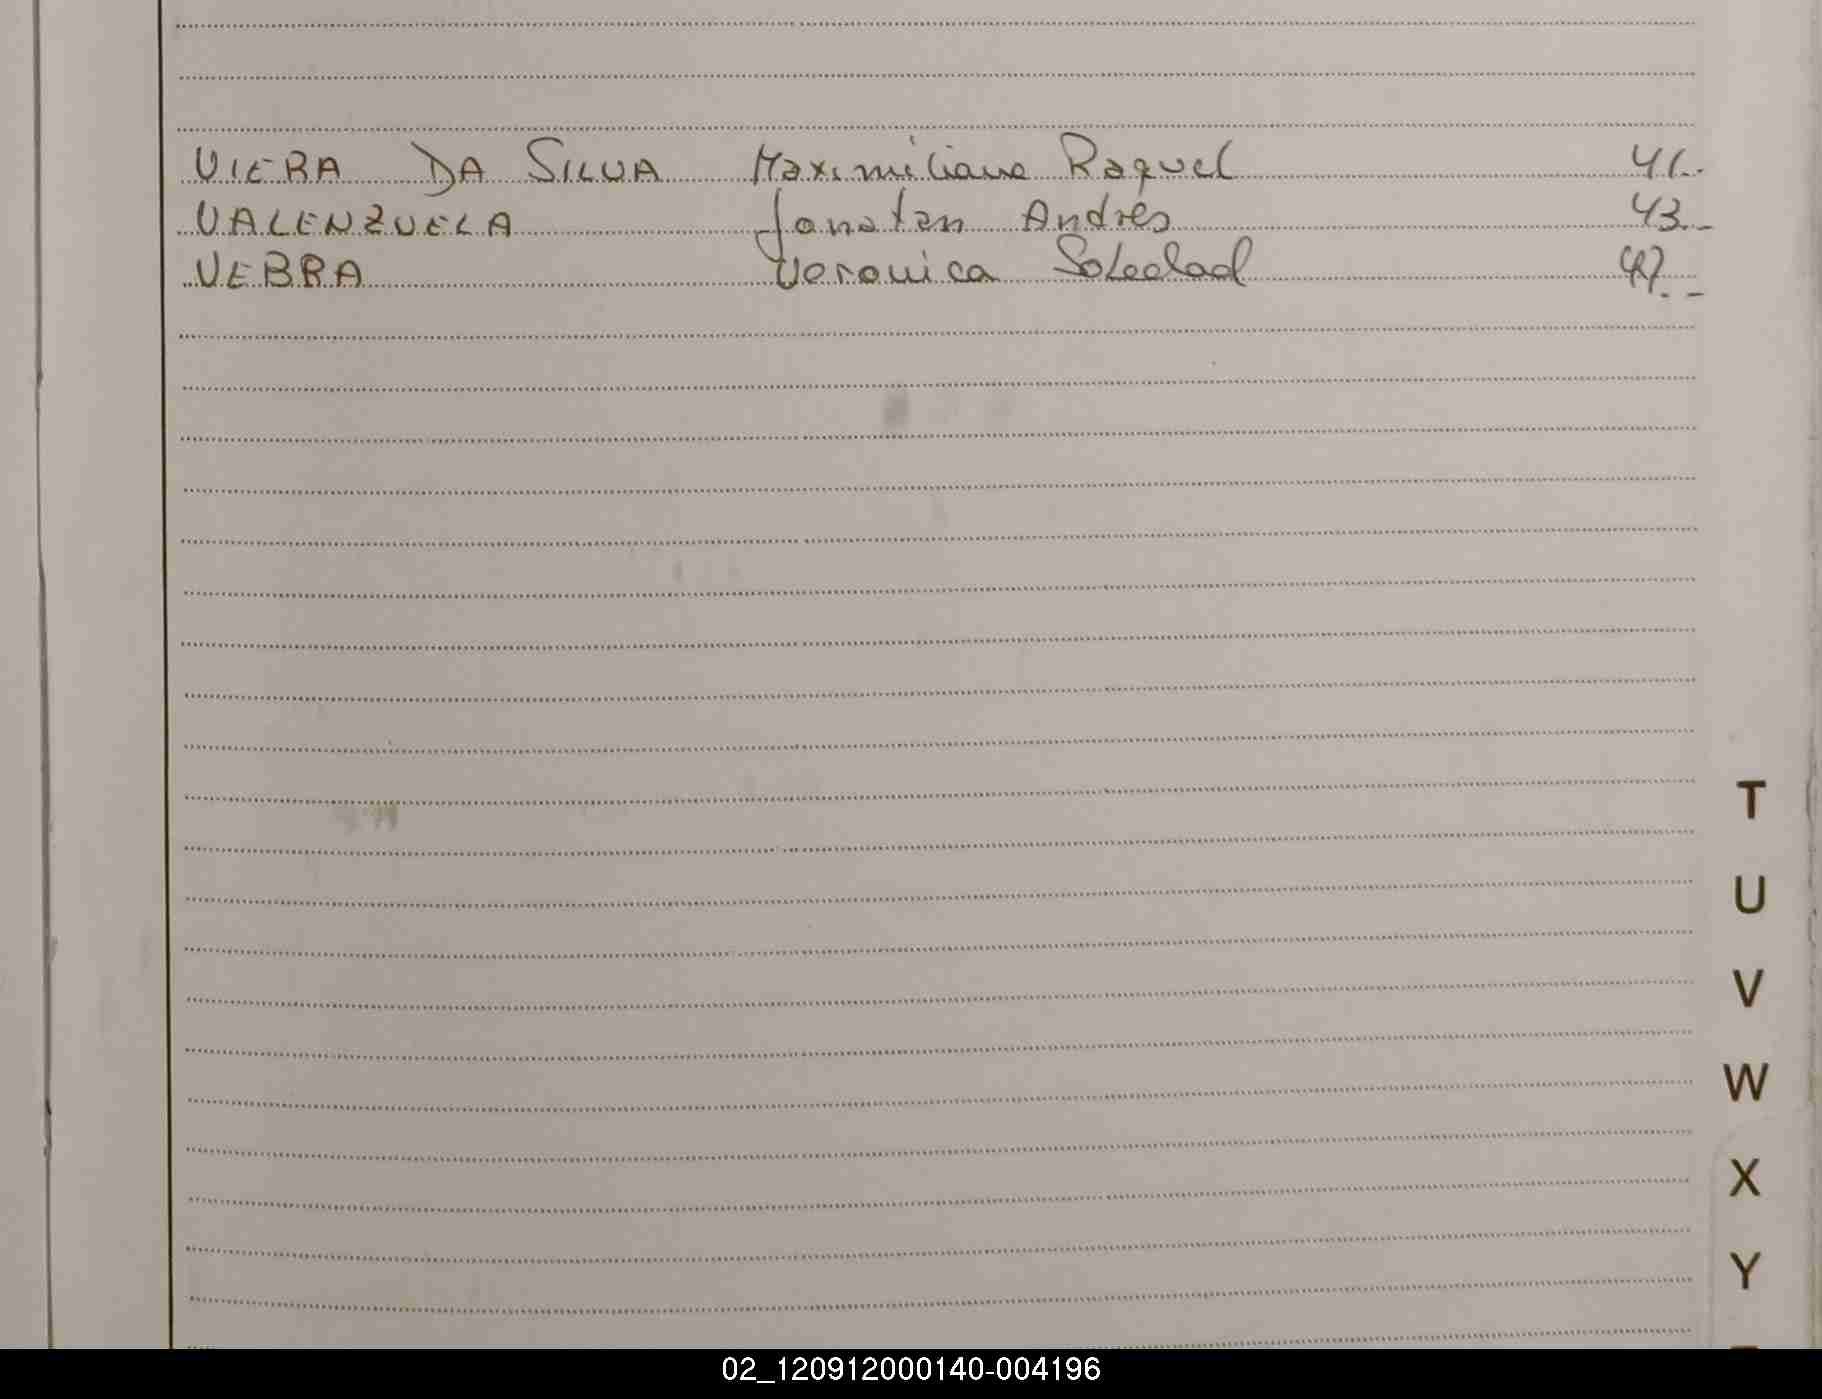 VIERA DA SILVA Maximiliano Raquel 41
VALENZUELA Jonatan Andrés 43
VEBRA Veronica Soledad 47
T
U
V
W
X
Y
02_120912000140-004196